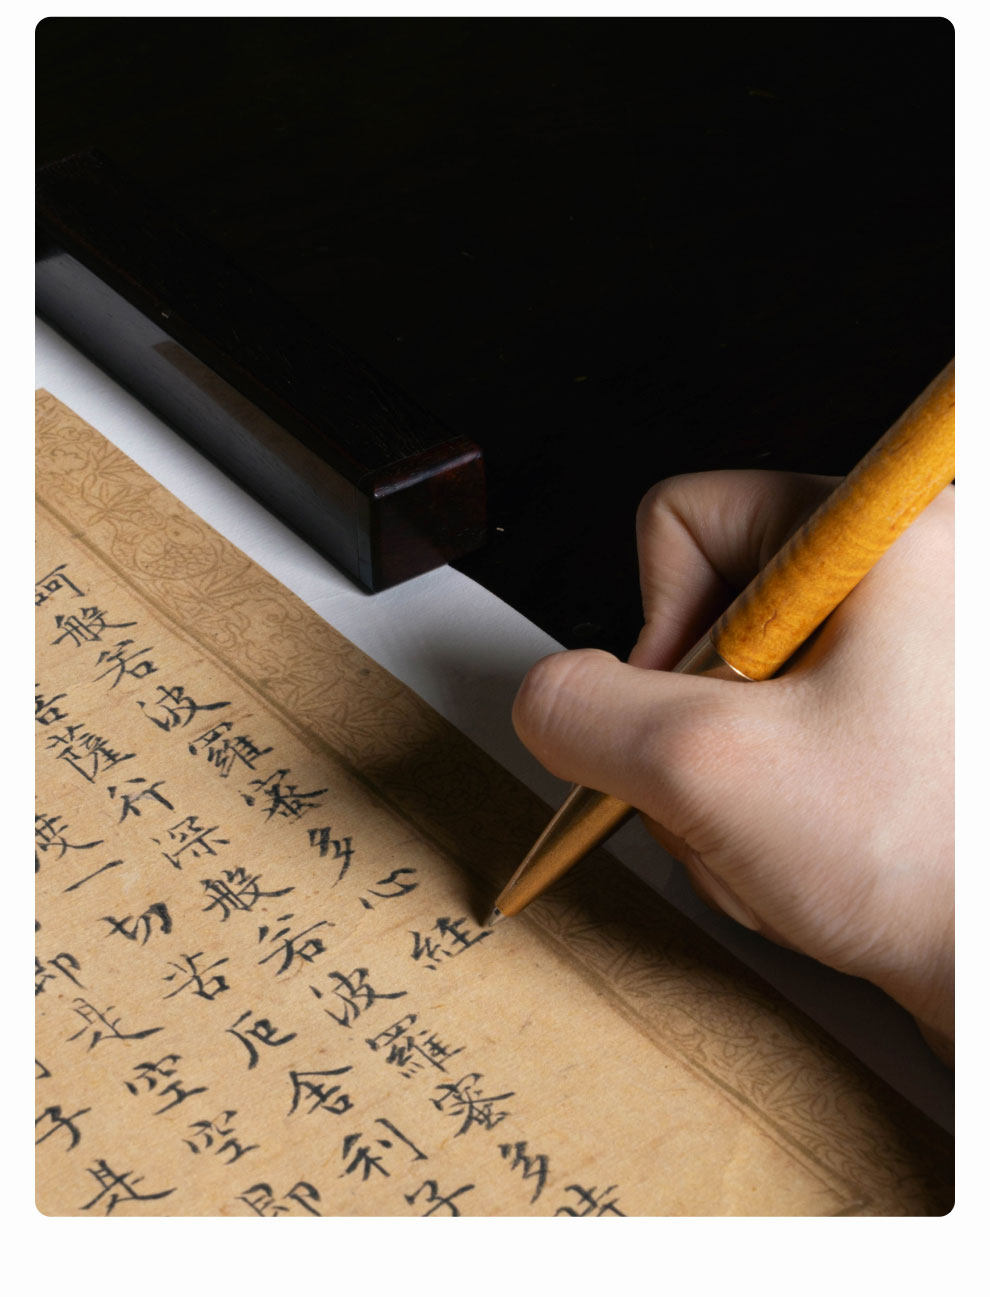 訶般若波羅蜜多心経
菩薩行深般若波羅蜜多時
度一切苦厄舍利子
即是空空即
子是